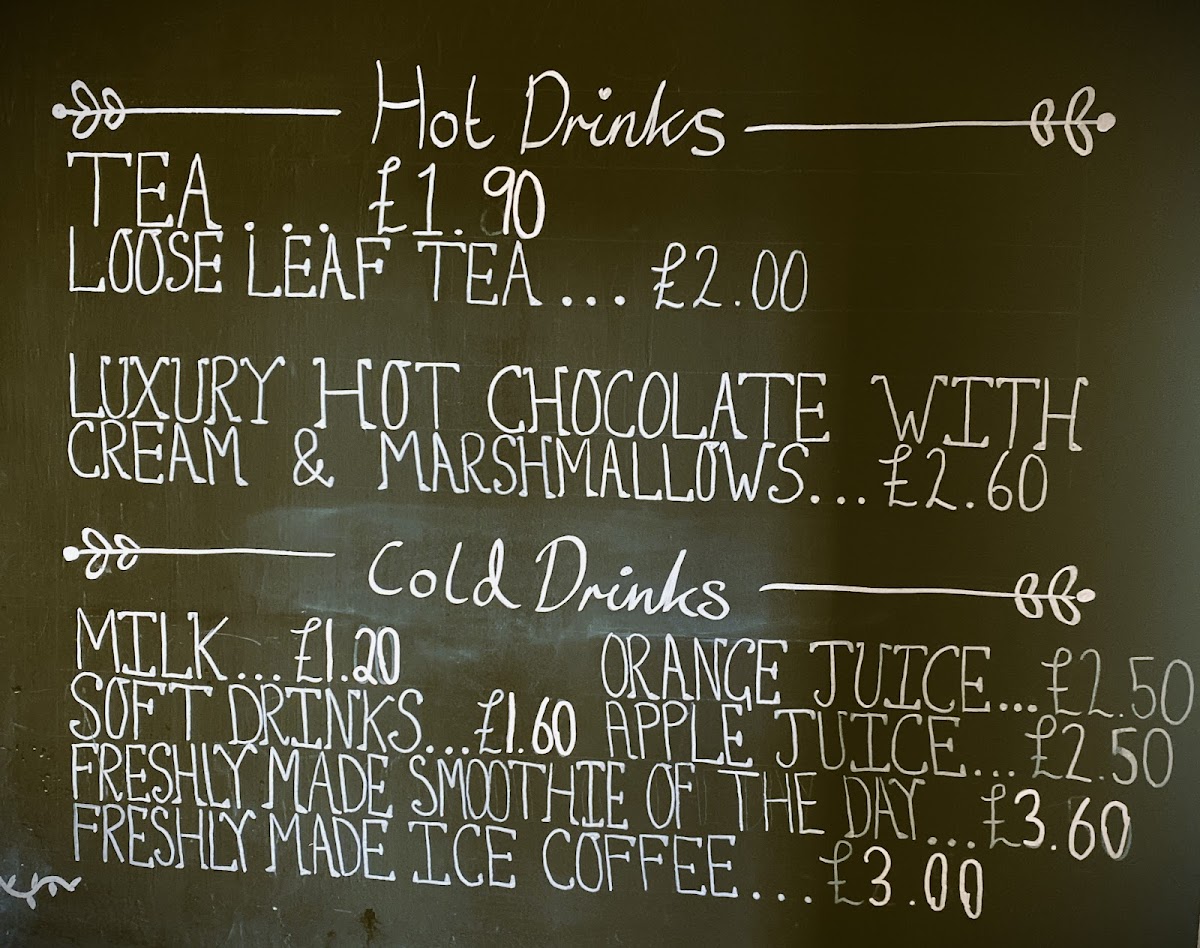 Hot Drinks
TEA.... £1.90
LOOSE LEAF TEA... £2.00
LUXURY HOT CHOCOLATE WITH
CREAM & MARSHMALLOWS... £2.60
Cold Drinks
MILK... £1.20 ORANGE JUICE... £2.50
SOFT DRINKS... £1.60 APPLE JUICE... £2.50
FRESHLY MADE SMOOTHIE OF THE DAY... £3.60
FRESHLY MADE ICE COFFEE... £3.00